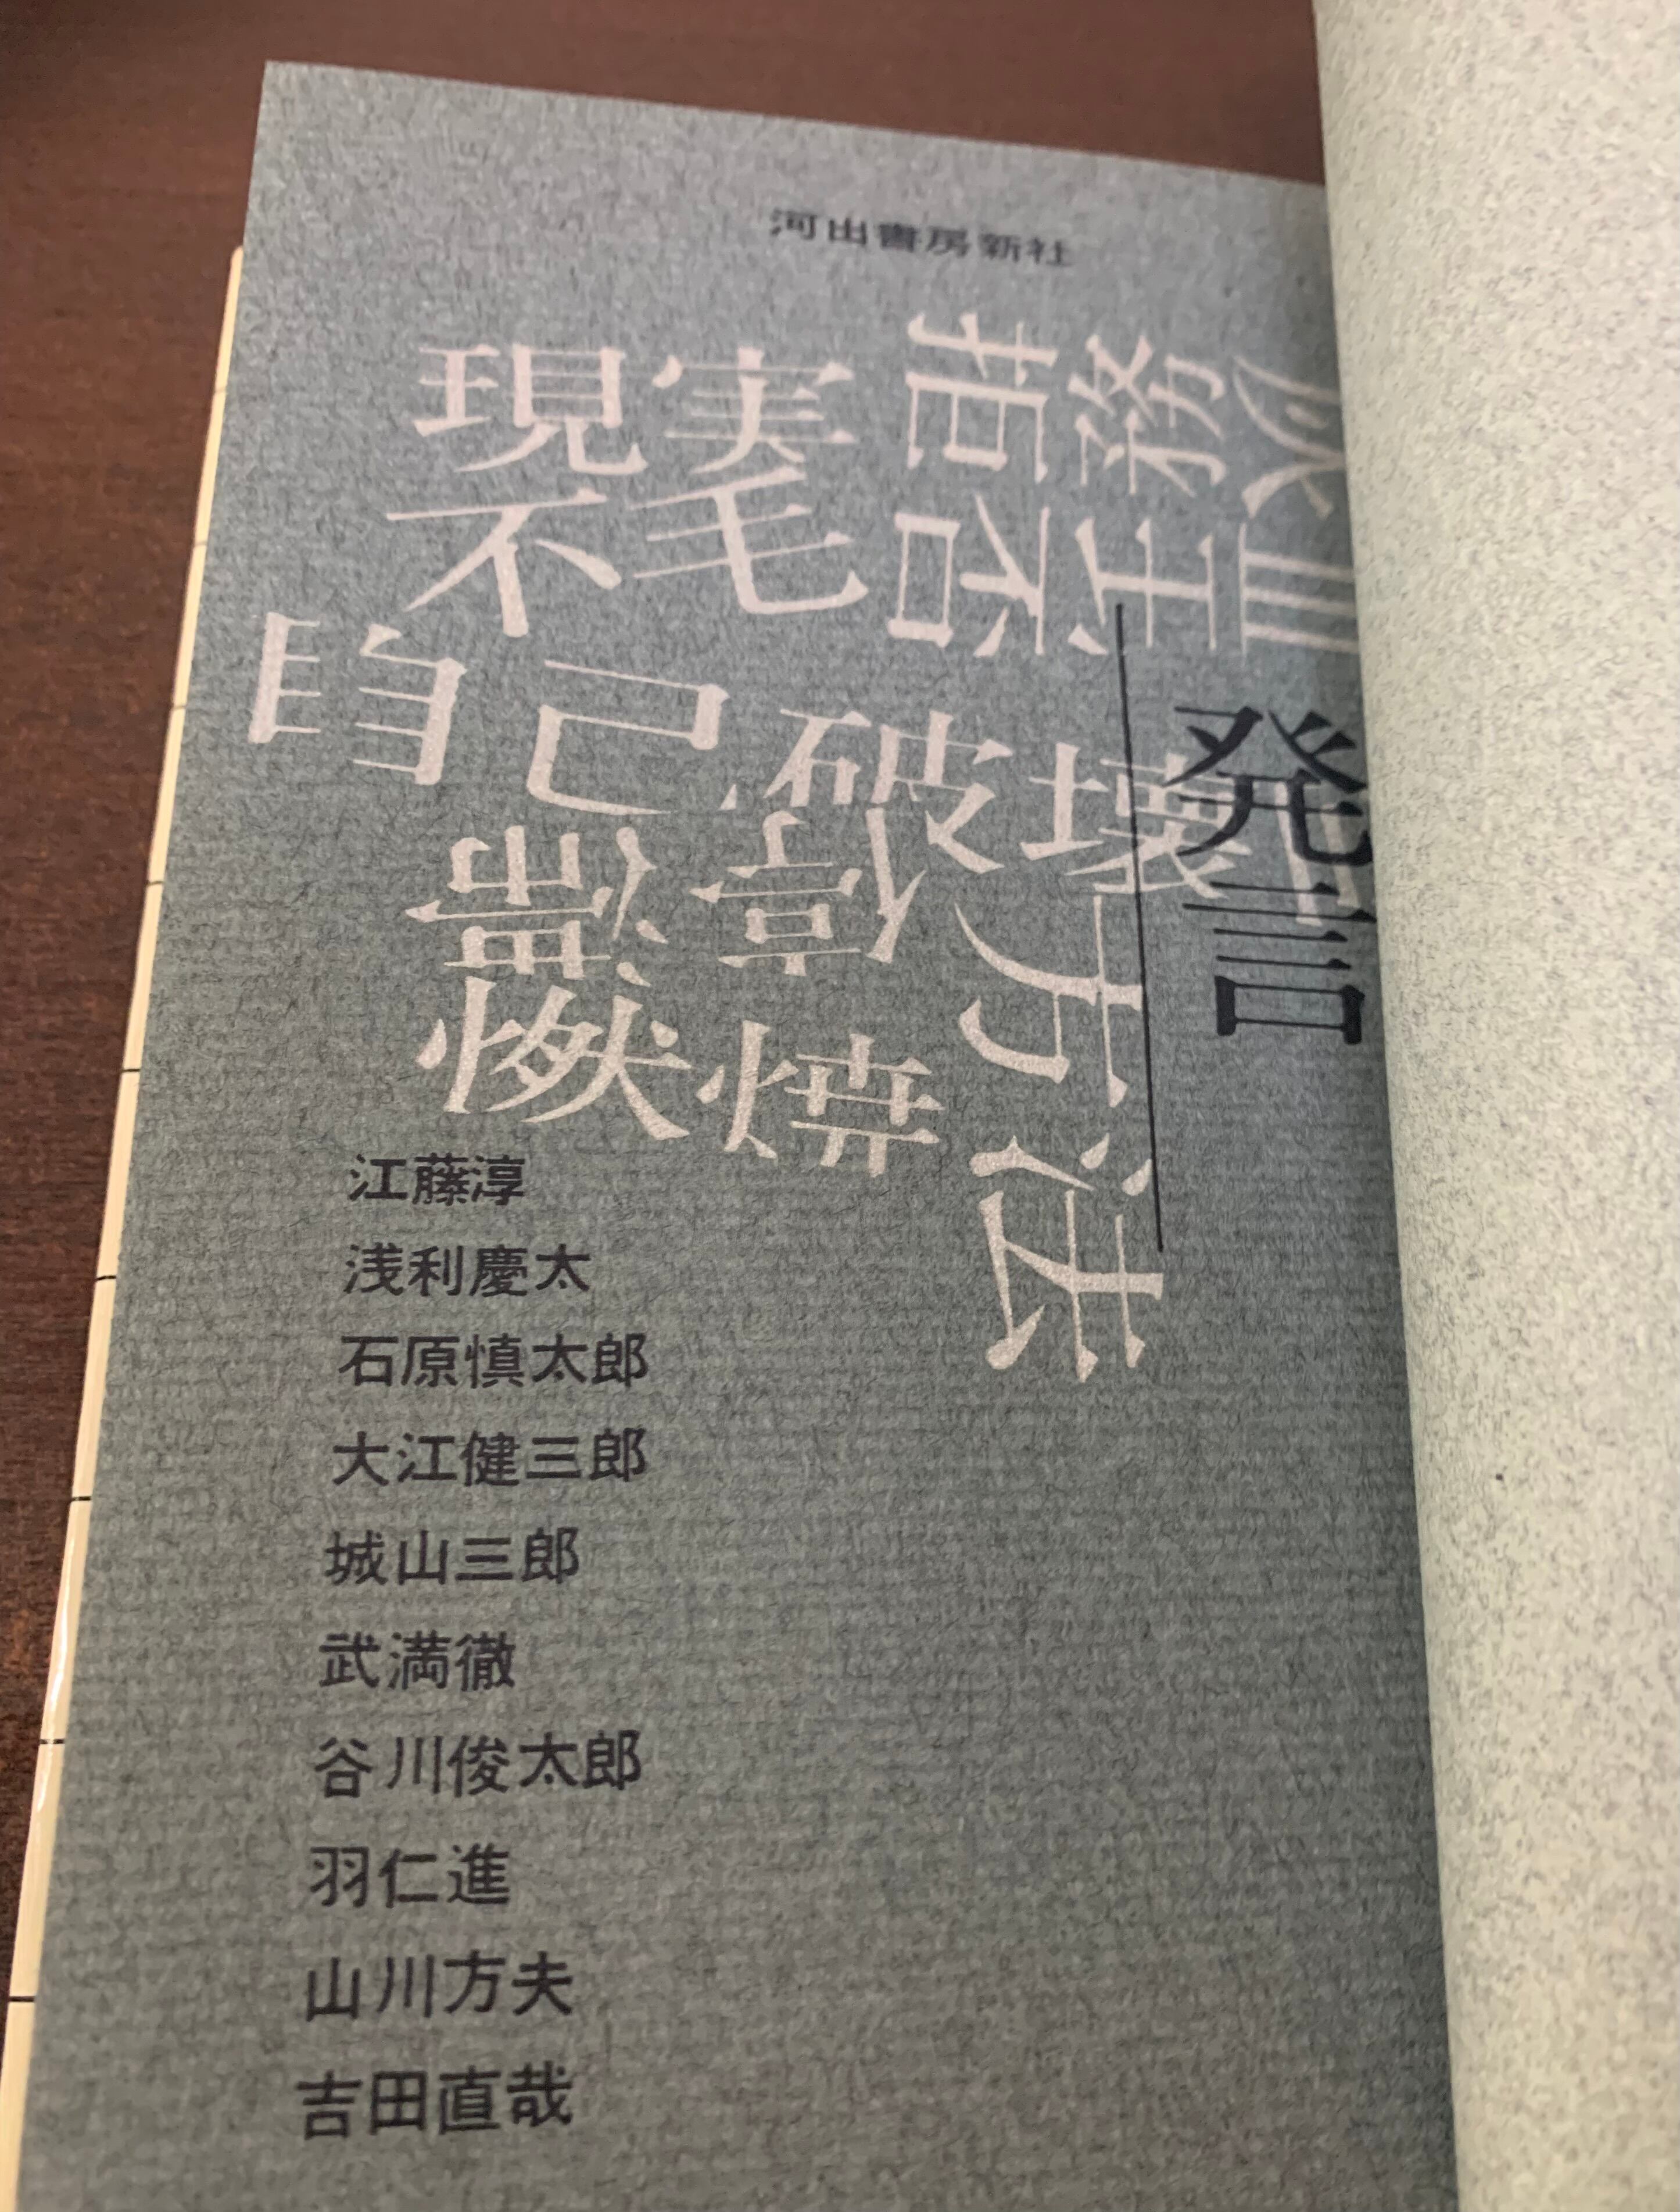 河出書房新社
現実
不毛
拒否
自己破壊
方法
燃焼
発言
江藤淳
浅利慶太
石原慎太郎
大江健三郎
城山三郎
武満徹
谷川俊太郎
羽仁進
山川方夫
吉田直哉